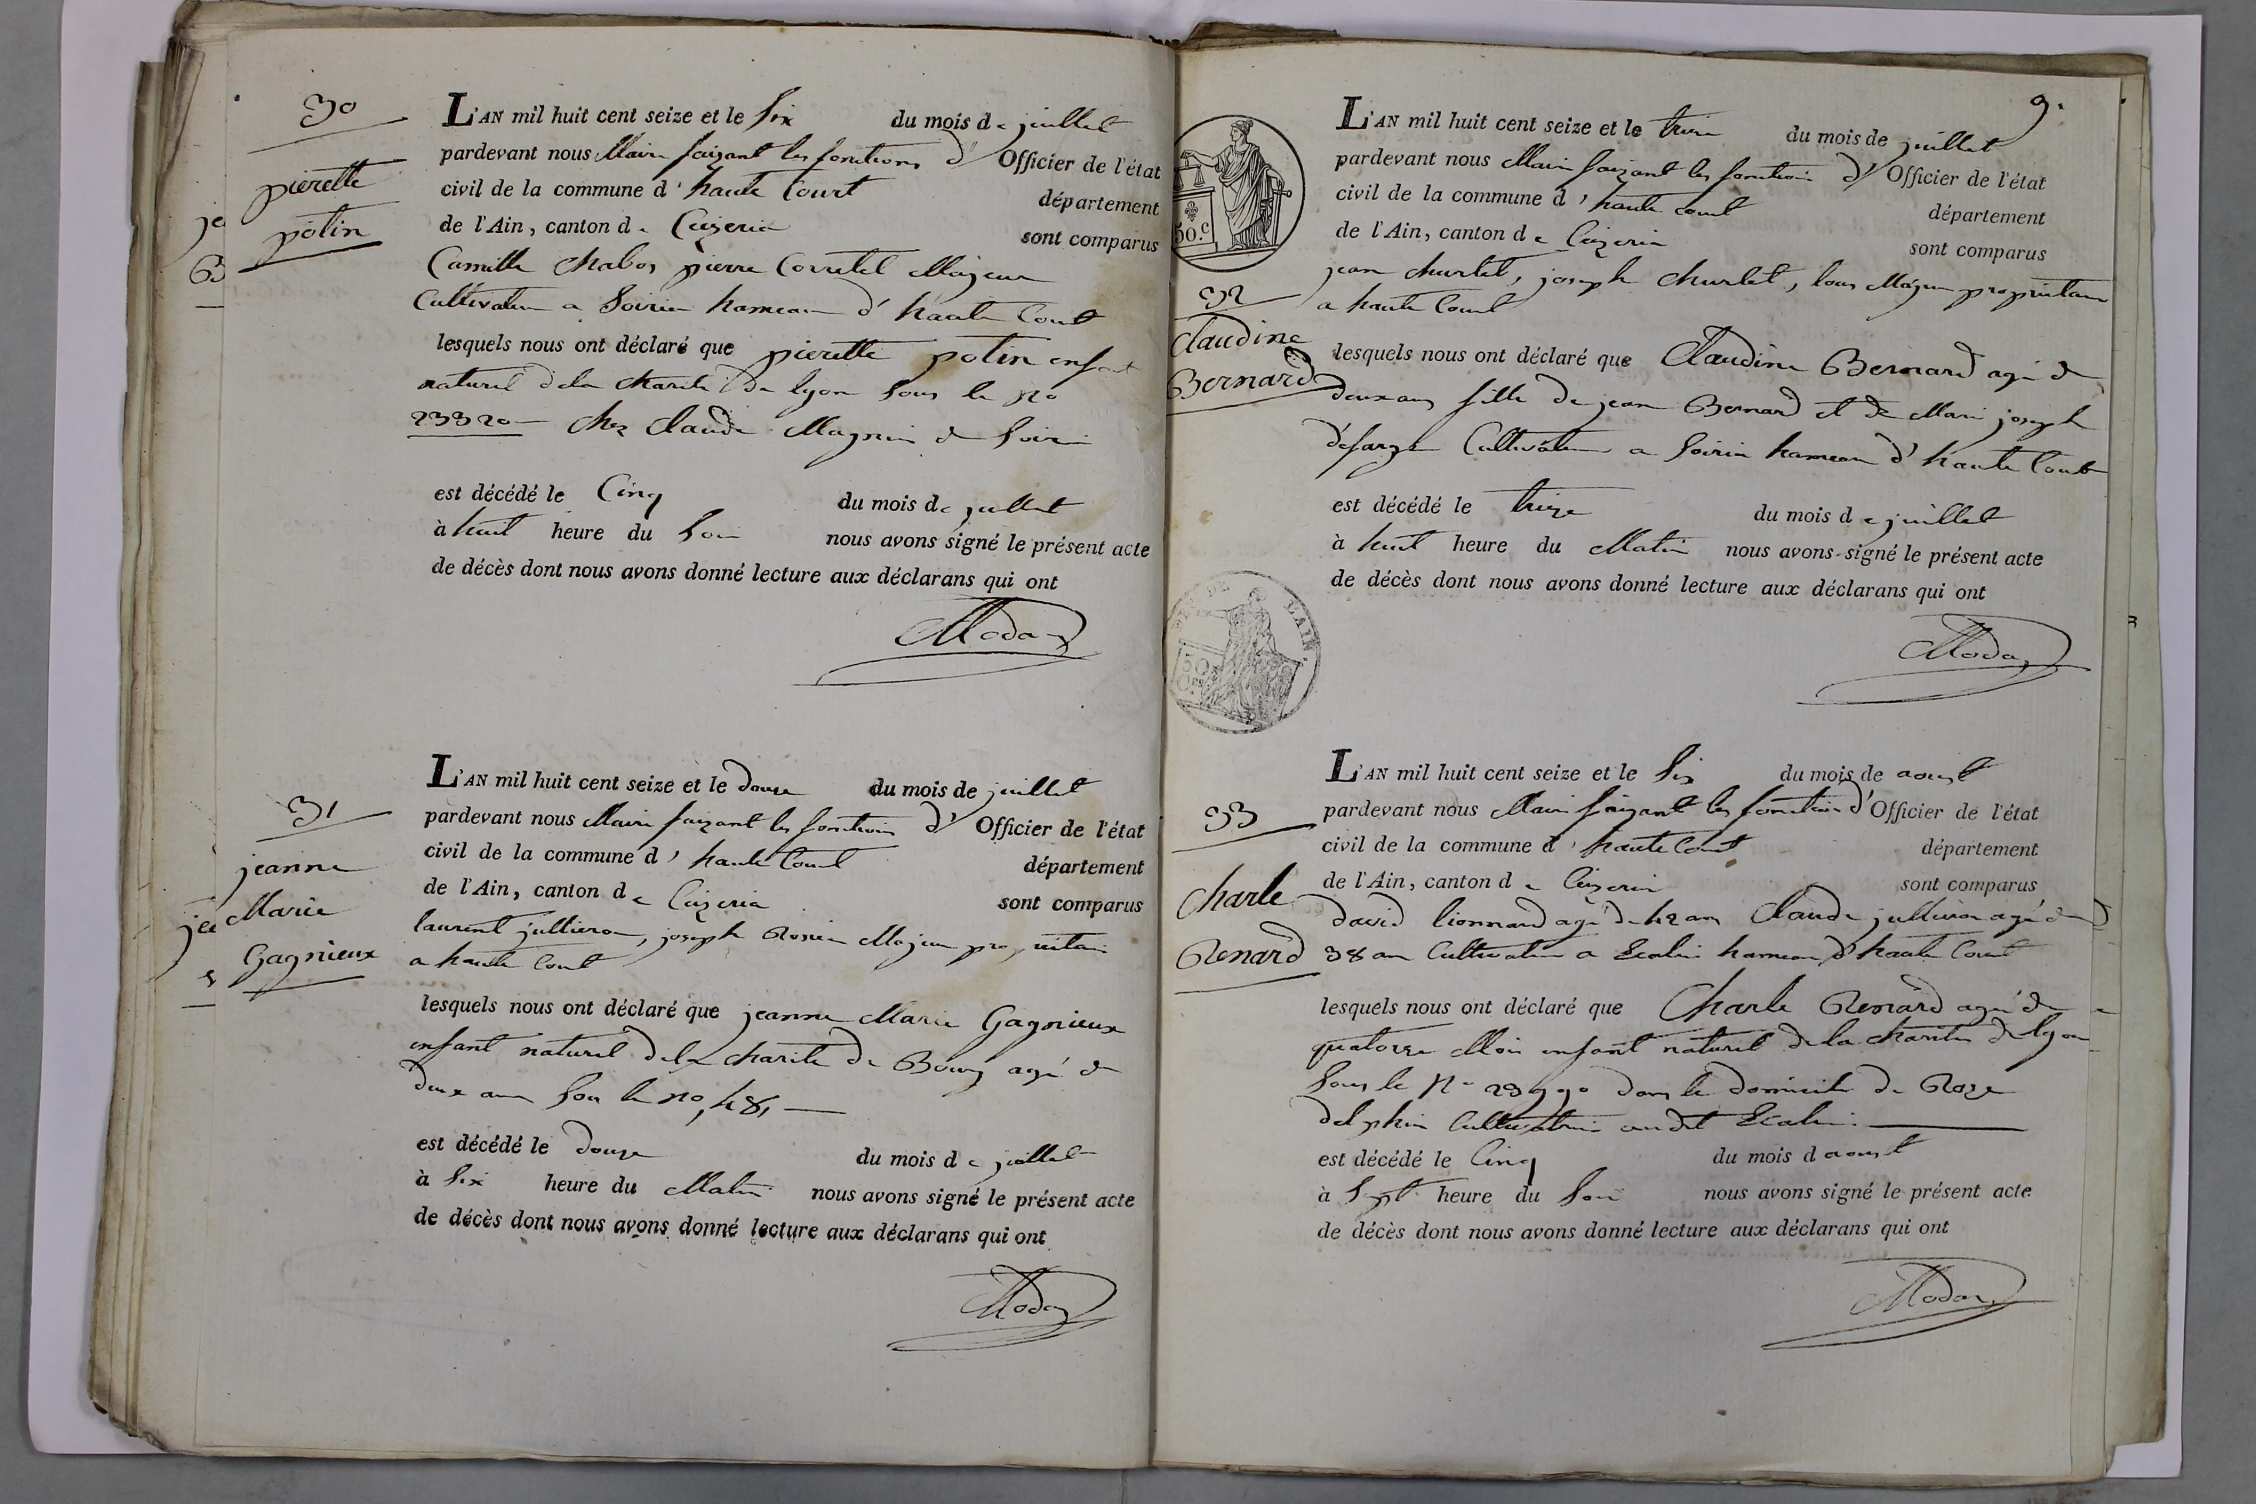 30
pierette
potin
L'AN mil huit cent seize et le Six du mois de juillet
pardevant nous Maire faizant les fonctions d' Officier de l'état
civil de la commune d'haute Court département
de l'Ain, canton de Ceizeria sont comparus
Camille Chabos pierre Corretel Majeur
Cultivateur a Soiria hameau d'haute Court
lesquels nous ont déclaré que pierette potin enfant
naturel dela charité de lyon sous le no
23320 chez Claude Magnin de Soiria
est décédé le Cinq du mois de juillet
à huit heure du Soir nous avons signé le présent acte
de décès dont nous avons donné lecture aux déclarans qui ont
Moda
31
jeanne
Marie
Gagnieux
L'AN mil huit cent seize et le douze du mois de juillet
pardevant nous Maire faizant les fonctions d' Officier de l'état
civil de la commune d'haute Court département
de l'Ain, canton de Ceizeria sont comparus
laurent jullieron, joseph Rosier Majeur proprietaire
a haute Court
lesquels nous ont déclaré que jeanne Marie Gagnieux
enfant naturel dela charite de Bourg agé de
deux ans sou le no, 481
est décédé le douze du mois de juillet
à Six heure du Matin nous avons signé le présent acte
de décès dont nous avons donné lecture aux déclarans qui ont
Moda
9.
50.c
32
Claudine
Bernard
L'AN mil huit cent seize et le treize du mois de juillet
pardevant nous Maire faizant les fonctions d' Officier de l'état
civil de la commune d'haute court département
de l'Ain, canton de Ceizeria sont comparus
jean churlet, joseph churlet, tous Majeur proprietaire
a haute Court
lesquels nous ont déclaré que Claudine Bernard agé de
deux ans fille de jean Bernard et de Marie joseph
défarge Cultivateur a Soiria hameau d'haute Court
est décédé le treize du mois de juillet
à huit heure du Matin nous avons signé le présent acte
de décès dont nous avons donné lecture aux déclarans qui ont
DE L'AIN
50
Moda
33
Charle
Renard
L'AN mil huit cent seize et le Six du mois de aoust
pardevant nous Maire faizant les fonctions d' Officier de l'état
civil de la commune d'haute Court département
de l'Ain, canton de Ceizeria sont comparus
david lionnard agé de 42 ans Claude jullieron agé de
38 ans Cultivateur a Ecalin hameau d'haute Court
lesquels nous ont déclaré que Charle Renard agé de
quatorze Moi enfant naturel de la charite de lyon
sous le No 23990 dans le domicile de Roze
delphin Cultivatrice audit Ecalin
est décédé le Cinq du mois d aoust
à Sept heure du Soir nous avons signé le présent acte
de décès dont nous avons donné lecture aux déclarans qui ont
Moda